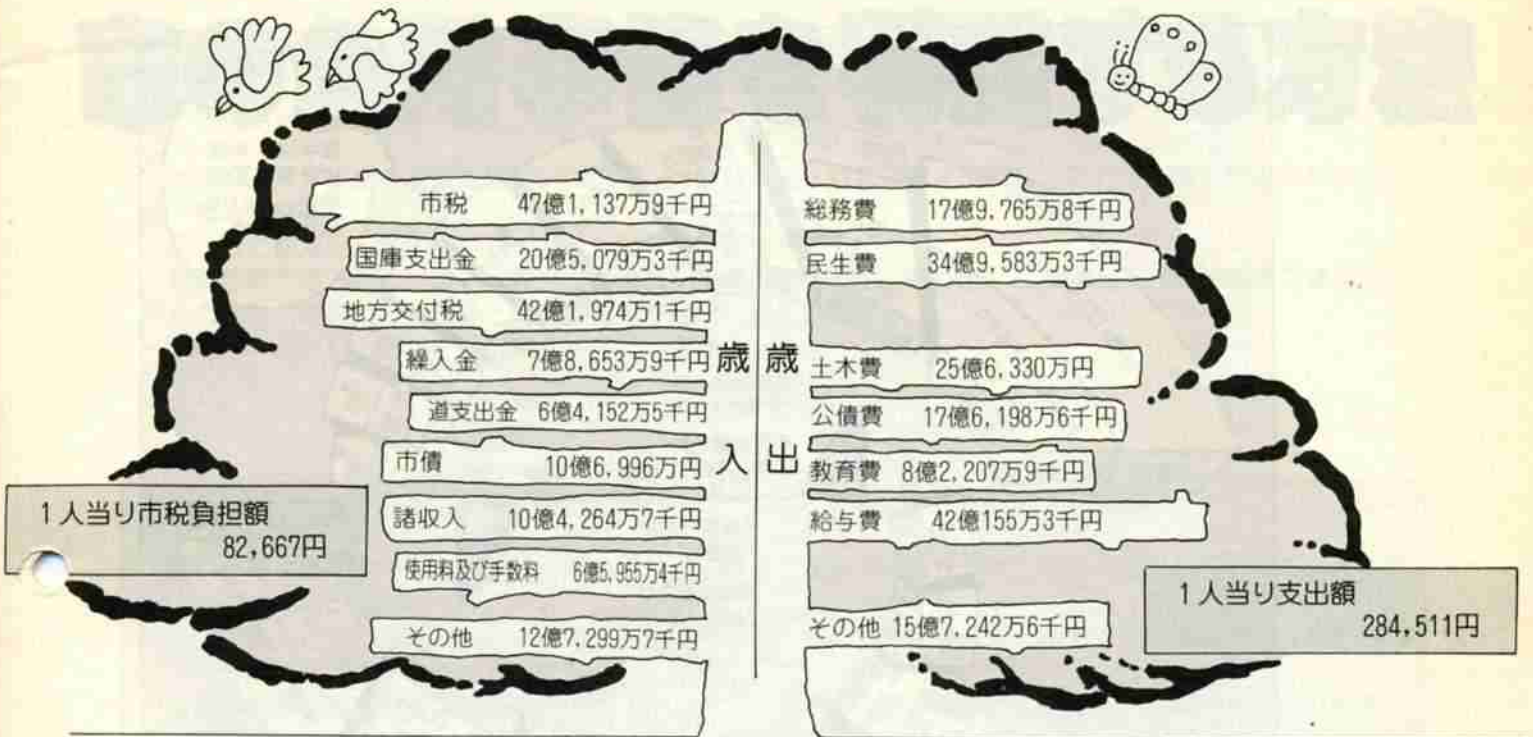 市税 47億1,137万9千円
国庫支出金 20億5,079万3千円
地方交付税 42億1,974万1千円
繰入金 7億8,653万9千円
道支出金 6億4,152万5千円
市債 10億6,996万円
諸収入 10億4,264万7千円
使用料及び手数料 6億5,955万4千円
その他 12億7,299万7千円
歳入
歳出
総務費 17億9,765万8千円
民生費 34億9,583万3千円
土木費 25億6,330万円
公債費 17億6,198万6千円
教育費 8億2,207万9千円
給与費 42億155万3千円
その他 15億7,242万6千円
1人当り市税負担額
82,667円
1人当り支出額
284,511円